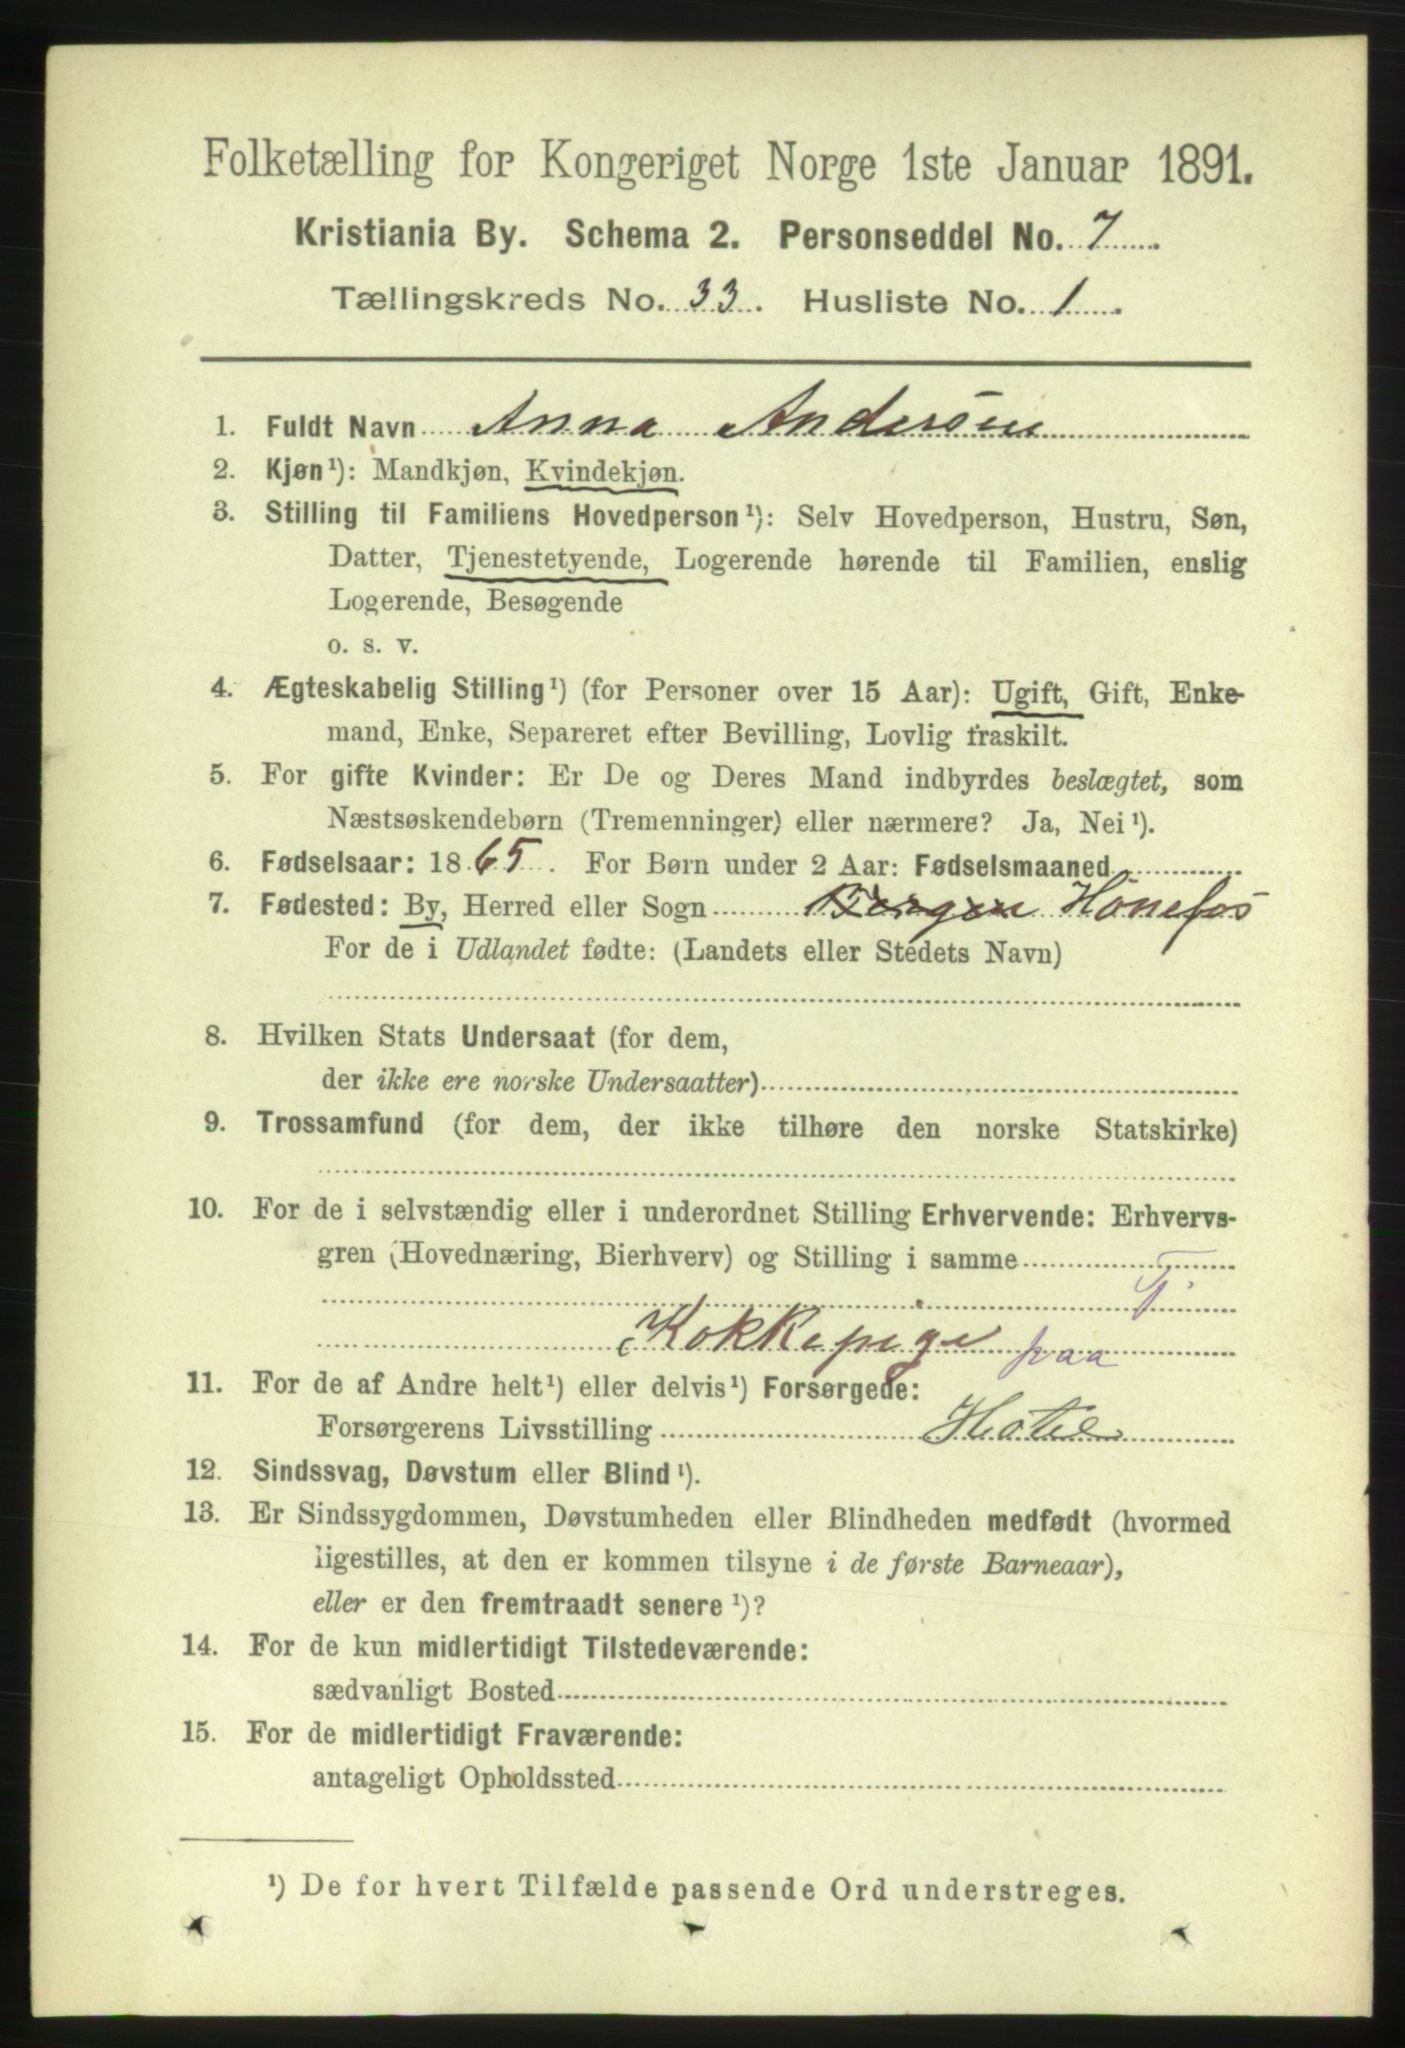 Folketælling for Kongeriget Norge 1ste Januar 1891.
Kristiania By. Schema 2. Personseddel No. 7
Tællingskreds No. 33. Husliste No. 1.
1. Fuldt Navn Anna Andersen
2. Kjøn¹): Mandkjøn, Kvindekjøn.
3. Stilling til Familiens Hovedperson¹): Selv Hovedperson, Hustru, Søn,
Datter, Tjenestetyende, Logerende hørende til Familien, enslig
Logerende, Besøgende
o. s. v.
4. Ægteskabelig Stilling¹) (for Personer over 15 Aar): Ugift, Gift, Enke-
mand, Enke, Separeret efter Bevilling, Lovlig fraskilt.
5. For gifte Kvinder: Er De og Deres Mand indbyrdes beslægtet, som
Næstsøskendebørn (Tremenninger) eller nærmere? Ja, Nei¹).
6. Fødselsaar: 1865. For Børn under 2 Aar: Fødselsmaaned
7. Fødested: By, Herred eller Sogn Bergen Hönefos
For de i Udlandet fødte: (Landets eller Stedets Navn)
8. Hvilken Stats Undersaat (for dem,
der ikke ere norske Undersaatter)
9. Trossamfund (for dem, der ikke tilhøre den norske Statskirke)
10. For de i selvstændig eller i underordnet Stilling Erhvervende: Erhvervs-
gren (Hovednæring, Bierhverv) og Stilling i samme
Kokkepige paa
11. For de af Andre helt¹) eller delvis¹) Forsørgede:
Forsørgerens Livsstilling Hotel
12. Sindssvag, Døvstum eller Blind¹).
13. Er Sindssygdommen, Døvstumheden eller Blindheden medfødt (hvormed
ligestilles, at den er kommen tilsyne i de første Barneaar),
eller er den fremtraadt senere¹)?
14. For de kun midlertidigt Tilstedeværende:
sædvanligt Bosted
15. For de midlertidigt Fraværende:
antageligt Opholdssted
¹) De for hvert Tilfælde passende Ord understreges.